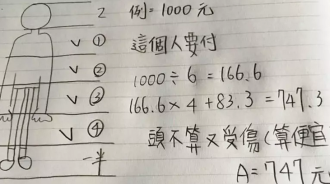 2 例=1000元
∨ ① 這個人要付
∨ ② 1000÷6=166.6
∨ ③ 166.6×4+83.3=747.3
∨ ④ 頭不算又受傷(算便宜
一半 A=747元